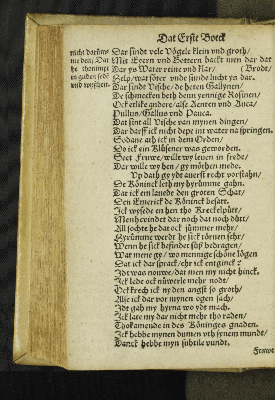 Dat Erste Boeck
nicht darüms
me den/ Dat
he thönmyt
in guden sede
und wysheit.
Dar sindt vele Vögele klein vnd groth/
Mit Eyern vnd Bottern backt men dar dat
Dar ys Water reine vnd klar/ (Brodt/
Help/ wat söter vnde sunde lucht ys dar.
Dar sind Vische/ de heten Gallynen/
De schmecken beth denn yennige Rosinen/
Ock etlike andere/ alse Aenten vnd Auca/
Pullus/ Gallus vnd Pauca.
Dat sint all Vische van mynen dingen/
Dar darff ick nicht depe int water na springen.
Sodane ath ick in dem Orden/
Do ick ein Klüsener was geworden.
Seet Fruwe/ wille wy leuen in frede/
Dar wille wy hen/ gy möthen mede.
Vp dath gy ydt auerst recht vorstahn/
De Köninck leth my hyrümme gahn.
Dat ick em lauede den groten Schat/
Den Emerick de Köninck besatt.
Ick wysede en hen tho Kreckelpütt/
Men he vindet dar noch dat noch dütt/
All söchte he dat ock jümmer mehr/
Hyrümme werdt he sick törnen sehr/
Wenn he sick befindet süß bedragen/
Wat mene gy/ wo mennige schöne lögen
Dat ick dar sprack/ ehr ick entginck?
Idt was nouwe/ dat men my nicht hinck.
Ick lede ock nüwerle mehr nodt/
Ock kreech ick ny den angst so groth/
Alse ick dar vor mynen ogen sach/
Idt gah my hyrna wo ydt mach.
Ick late my dar nicht mehr tho raden/
Tho kamende in des Köninges gnaden.
Ick hebbe mynen dumen vth synem mundt/
Danck hebbe myn subtile vundt.
Fruwe